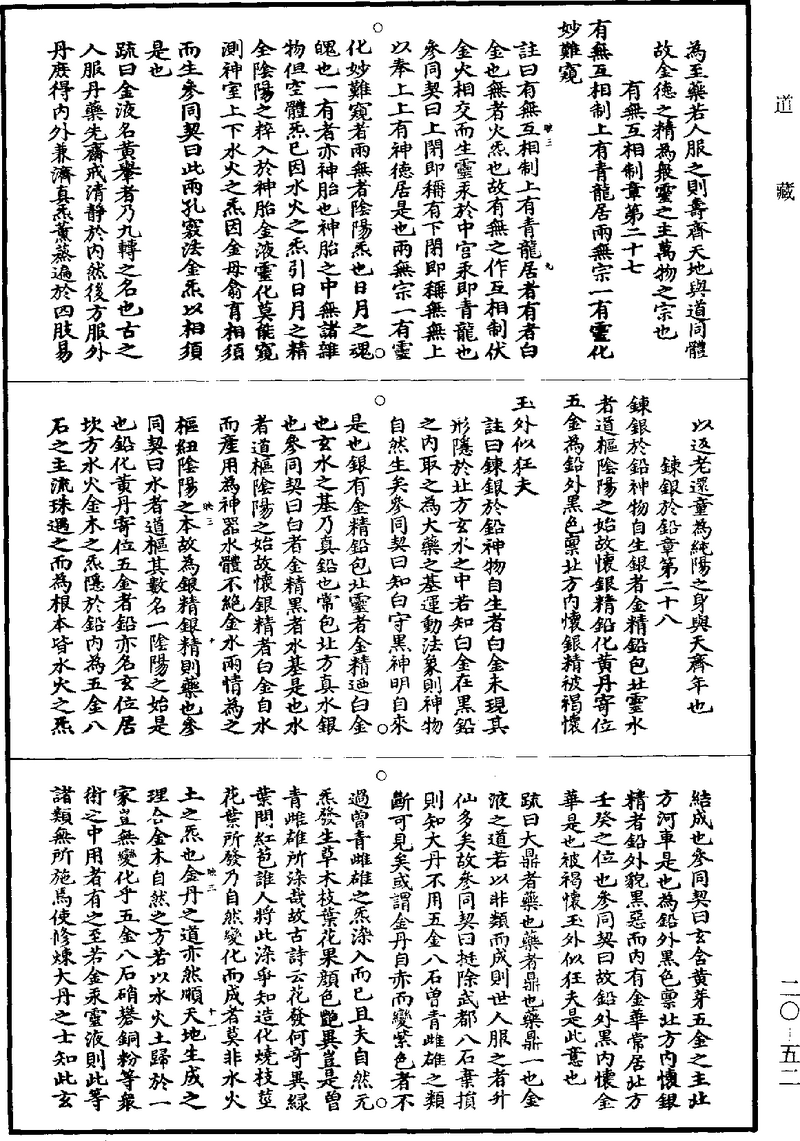 道藏
為至藥若人服之則壽齊天地與道同體
故金德之精為衆靈之主萬物之宗也
有無互相制章第二十七
有無互相制上有青龍居兩無宗一有靈化
妙難窺
註曰有無互相制上有青龍居者有者白
金也無者火炁也故有無之作互相制伏
金火相交而生靈汞於中宮汞即青龍也
參同契曰上閉即稱有下閉即稱無無上
以奉上上有神德居是也兩無宗一有靈
化妙難窺者兩無者陰陽炁也日月之魂
魄也一有者亦神胎也神胎之中無諸雜
物但空體炁已因水火之炁引日月之精
全陰陽之粹入於神胎金液靈化莫能窺
測神室上下水火之炁因金母翕育相須
而生參同契曰此兩孔竅法金炁以相須
是也
疏曰金液名黃轝者乃九轉之名也古之
人服丹藥先齋戒清靜於內然後方服外
丹庶得內外兼濟真炁薰蒸遍於四肢易
以返老還童為純陽之身與天齊年也
鍊銀於鉛章第二十八
鍊銀於鉛神物自生銀者金精鉛包北靈水
者道樞陰陽之始故懷銀精鉛化黃丹寄位
五金為鉛外黑色稟北方內懷銀精被褐懷
玉外似狂夫
註曰鍊銀於鉛神物自生者白金未現其
形隱於北方玄水之中若知白金在黑鉛
之內取之為大藥之基運動法象則神物
自然生矣參同契曰知白守黑神明自來
是也銀有金精鉛包北靈者金精迺白金
也玄水之基乃真鉛也常包北方真水銀
也參同契曰白者金精黑者水基是也水
者道樞陰陽之始故懷銀精者白金自水
而產用為神器水體不絕金水兩情為之
樞紐陰陽之本故為銀精銀精則藥也參
同契曰水者道樞其數名一陰陽之始是
也鉛化黃丹寄位五金者鉛亦名玄位居
坎方水火金木之炁隱於鉛內為五金八
石之主流珠遇之而為根本皆水火之炁
結成也參同契曰玄含黃芽五金之主北
方河車是也為鉛外黑色稟北方內懷銀
精者鉛外貌黑惡而內有金華常居北方
壬癸之位也參同契曰故鉛外黑內懷金
華是也被褐懷玉外似狂夫是此意也
疏曰大鼎者藥也藥者鼎也藥鼎一也金
液之道若以非類而成則世人服之者升
仙多矣故參同契曰挺除武都八石棄損
則知大丹不用五金八石曾青雌雄之類
斷可見矣或謂金丹自赤而變紫色者不
過曾青雌雄之炁染入而已且夫自然元
炁發生草木枝葉花果顏色艷異豈是曾
青雌雄所染哉故古詩云花發何奇異綠
葉間紅苞誰人將此染乎知造化燒枝莖
花葉所發乃自然變化而成者莫非水火
土之炁也金丹之道亦然順天地生成之
理合金木自然之方若以水火土歸於一
家豈無變化乎五金八石硝礬銅粉等衆
術之中用者有之至若金汞靈液則此等
諸類無所施焉使修煉大丹之士知此玄
二〇-五二